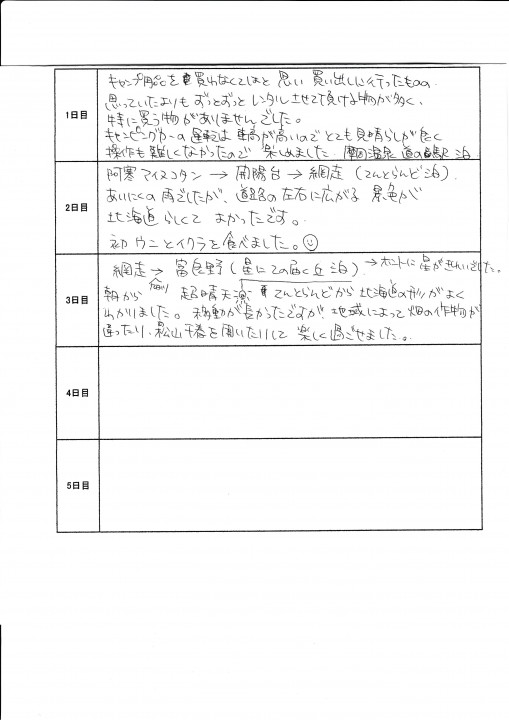 1日目
キャンプ用品を買わなくてはと思い買い出しに行ったものの、
思っていたよりもずっとずっとレンタルさせて頂ける物が多く、
特に買う物がありませんでした。
キャンピングカーの運転は車高が高いのでとても見晴らしが良く
操作も難しくなかったので楽しめました。摩周温泉 道の駅 泊
2日目
阿寒アイヌコタン → 開陽台 → 網走（てんとらんど泊）
あいにくの雨でしたが、道路の左右に広がる景色が
北海道らしくてよかったです。
初ウニとイクラを食べました。
3日目
網走 → 富良野（星に手の届く丘 泊）→ ホントに星がきれいでした。
朝から 超晴天 てんとらんどから北海道の形がよく
わかりました。移動が長かったですが、地域によって畑の作物が
違ったり、松山千春を聞いたりして楽しく過ごせました。
4日目
5日目